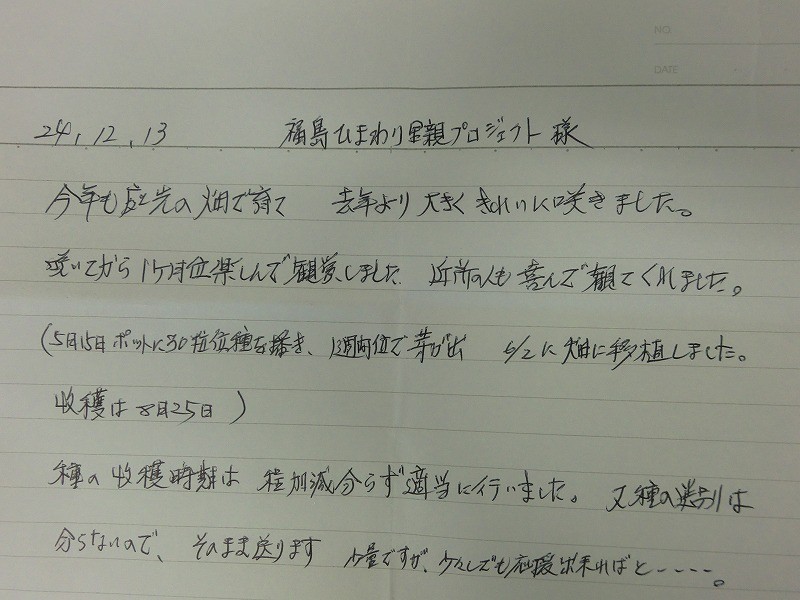 NO.
DATE
24, 12, 13 福島ひまわり里親プロジェクト 様
今年も庭先の畑で育て 去年より 大きく きれいに咲きました。
咲いてから 1ケ月位楽しんで観賞しました 近所の人も喜んで観てくれました。
(5月15日 ポットに30粒位種を播き、1週間位で芽が出 6/2に畑に移植しました。
収穫は 8月25日)
種の収穫時期は 程加減分らず適当に行いました。 又種の選別は
分らないので、そのまま送ります 少量ですが、少々しでも応援出来ればと----。